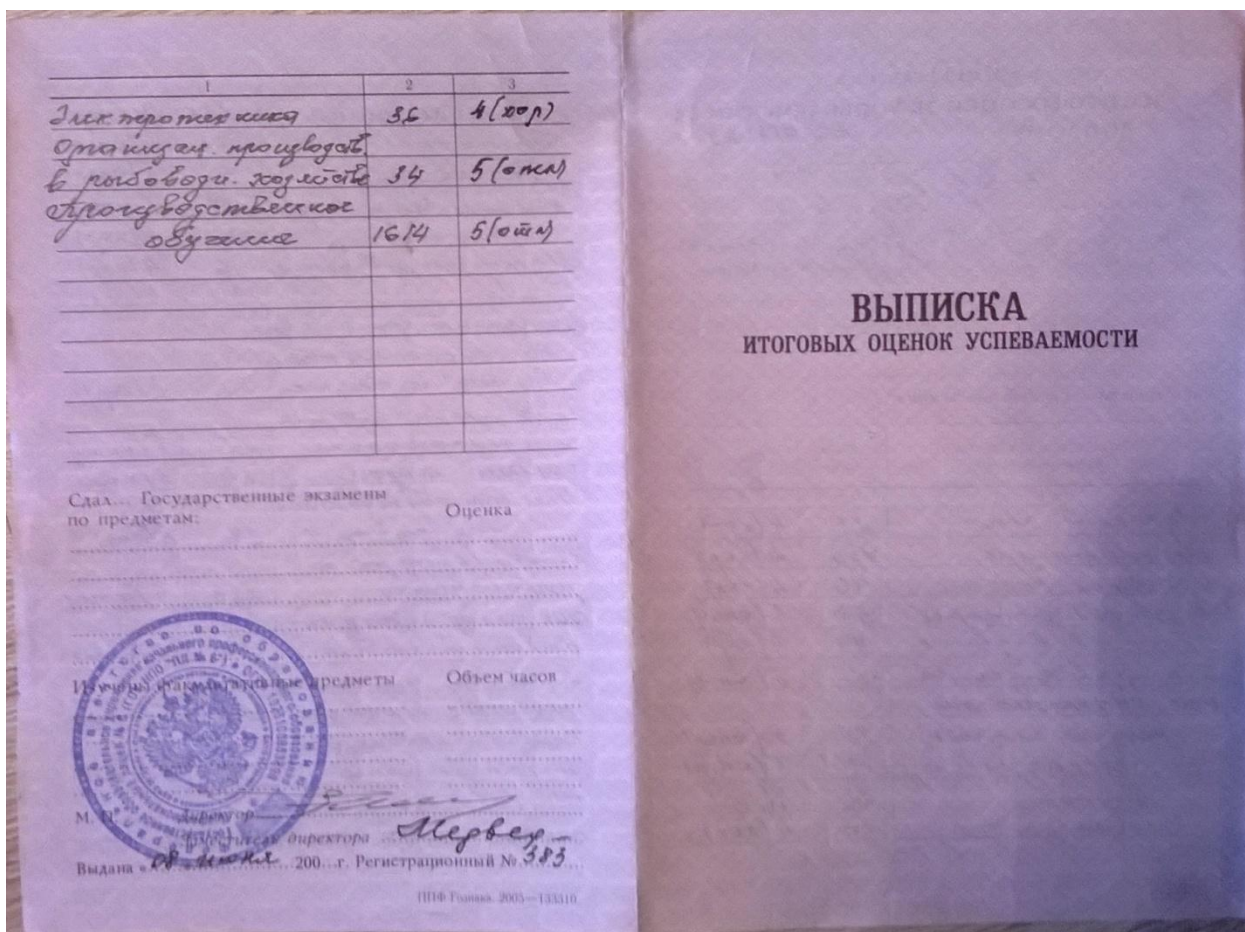 1 2 3
Электротехника 36 4 (хор)
Организац. производств.
в рыбоводн. хозяйстве 34 5 (отл)
Производственное
обучение 1614 5 (отл)
Сдал... Государственные экзамены
по предметам: Оценка
Изучены факультативные предметы Объем часов
М. П. Директор
Заместитель директора Медвед
Выдана « 08 июня 200 г. Регистрационный № 383
ППФ Гознака. 2005
ВЫПИСКА
ИТОГОВЫХ ОЦЕНОК УСПЕВАЕМОСТИ